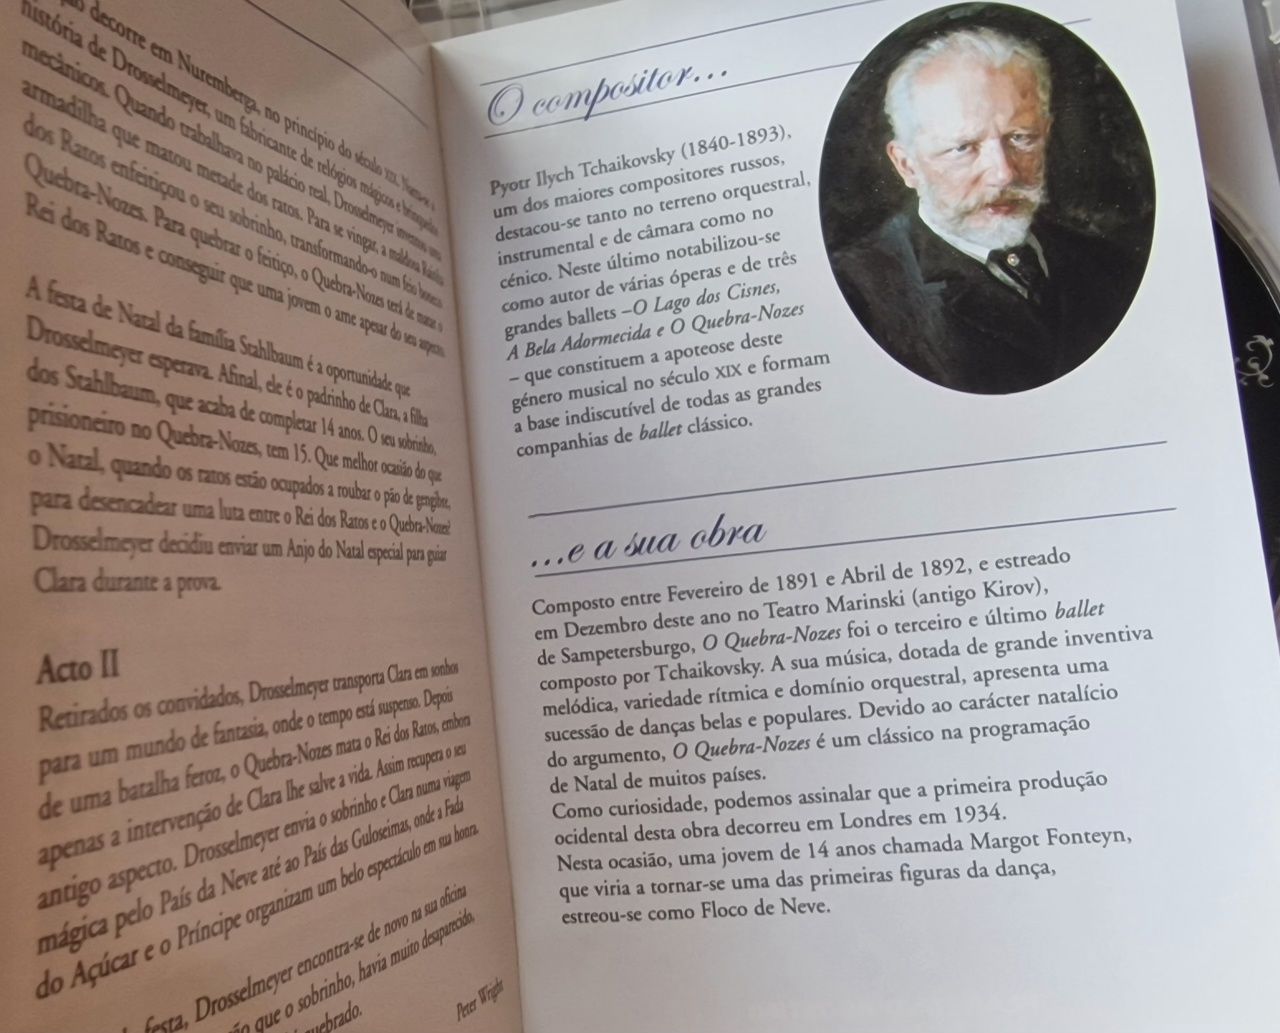 decorre em Nuremberga, no princípio do século XIX. Narra-se a
história de Drosselmeyer, um fabricante de relógios mágicos e brinquedos
mecânicos. Quando trabalhava no palácio real, Drosselmeyer inventou uma
armadilha que matou metade dos ratos. Para se vingar, a maldosa Rainha
dos Ratos enfeitiçou o seu sobrinho, transformando-o num feio boneco
Quebra-Nozes. Para quebrar o feitiço, o Quebra-Nozes terá de matar o
Rei dos Ratos e conseguir que uma jovem o ame apesar do seu aspecto.
A festa de Natal da família Stahlbaum é a oportunidade que
Drosselmeyer esperava. Afinal, ele é o padrinho de Clara, a filha
dos Stahlbaum, que acaba de completar 14 anos. O seu sobrinho,
prisioneiro no Quebra-Nozes, tem 15. Que melhor ocasião do que
o Natal, quando os ratos estão ocupados a roubar o pão de gengibre,
para desencadear uma luta entre o Rei dos Ratos e o Quebra-Nozes?
Drosselmeyer decidiu enviar um Anjo do Natal especial para guiar
Clara durante a prova.
Acto II
Retirados os convidados, Drosselmeyer transporta Clara em sonhos
para um mundo de fantasia, onde o tempo está suspenso. Depois
de uma batalha feroz, o Quebra-Nozes mata o Rei dos Ratos, embora
apenas a intervenção de Clara lhe salve a vida. Assim recupera o seu
antigo aspecto. Drosselmeyer envia o sobrinho e Clara numa viagem
mágica pelo País da Neve até ao País das Guloseimas, onde a Fada
do Açúcar e o Príncipe organizam um belo espectáculo em sua honra.
festa, Drosselmeyer encontra-se de novo na sua oficina
que o sobrinho, havia muito desaparecido,
quebrado.
Peter Wright
O compositor...
Pyotr Ilych Tchaikovsky (1840-1893),
um dos maiores compositores russos,
destacou-se tanto no terreno orquestral,
instrumental e de câmara como no
cénico. Neste último notabilizou-se
como autor de várias óperas e de três
grandes ballets –O Lago dos Cisnes,
A Bela Adormecida e O Quebra-Nozes
– que constituem a apoteose deste
género musical no século XIX e formam
a base indiscutível de todas as grandes
companhias de ballet clássico.
...e a sua obra
Composto entre Fevereiro de 1891 e Abril de 1892, e estreado
em Dezembro deste ano no Teatro Marinski (antigo Kirov),
de Sampetersburgo, O Quebra-Nozes foi o terceiro e último ballet
composto por Tchaikovsky. A sua música, dotada de grande inventiva
melódica, variedade rítmica e domínio orquestral, apresenta uma
sucessão de danças belas e populares. Devido ao carácter natalício
do argumento, O Quebra-Nozes é um clássico na programação
de Natal de muitos países.
Como curiosidade, podemos assinalar que a primeira produção
ocidental desta obra decorreu em Londres em 1934.
Nesta ocasião, uma jovem de 14 anos chamada Margot Fonteyn,
que viria a tornar-se uma das primeiras figuras da dança,
estreou-se como Floco de Neve.